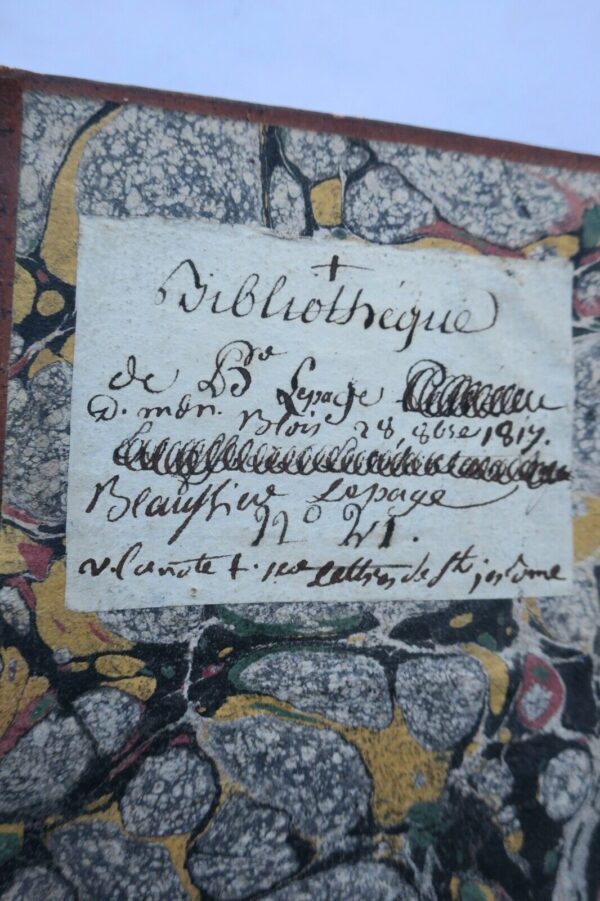 †
Bibliothéque
de Bre Lepage
D. m&n. Blois 28, 8bre 1817.
Beaussier Lepage
N° 21.
v. la note t. 1er lettres de St jerôme